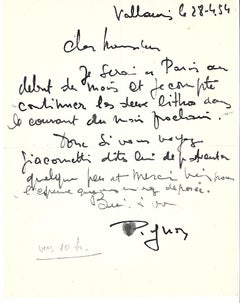 Vallauris le 28-4-54
cher monsieur
Je serai à Paris au
début du mois et je compte
continuer les deux lithos dans
le courant du mois prochain.
Donc si vous voyez
Giacometti dites lui de
quelque peu et merci pour
déposée.
à vous
Pignon
vers 10 h.